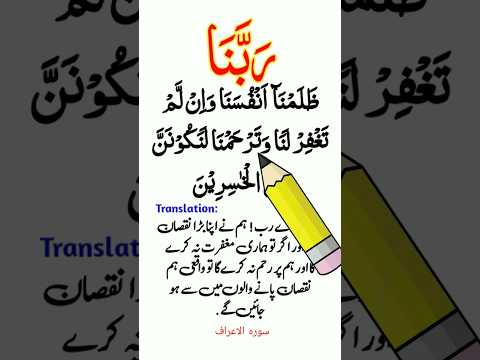 رَبَّنَا
ظَلَمْنَآ اَنْفُسَنَا وَاِنْ لَّمْ
تَغْفِرْ لَنَا وَتَرْحَمْنَا لَنَكُوْنَنَّ
الْخٰسِرِيْنَ
Translation:
رب! ہم نے اپنا بڑا نقصان
اگر تو ہماری مغفرت نہ کرے
گا اور ہم پر رحم نہ کرے گا تو واقعی ہم
نقصان پانے والوں میں سے ہو
جائیں گے.
سورہ الاعراف